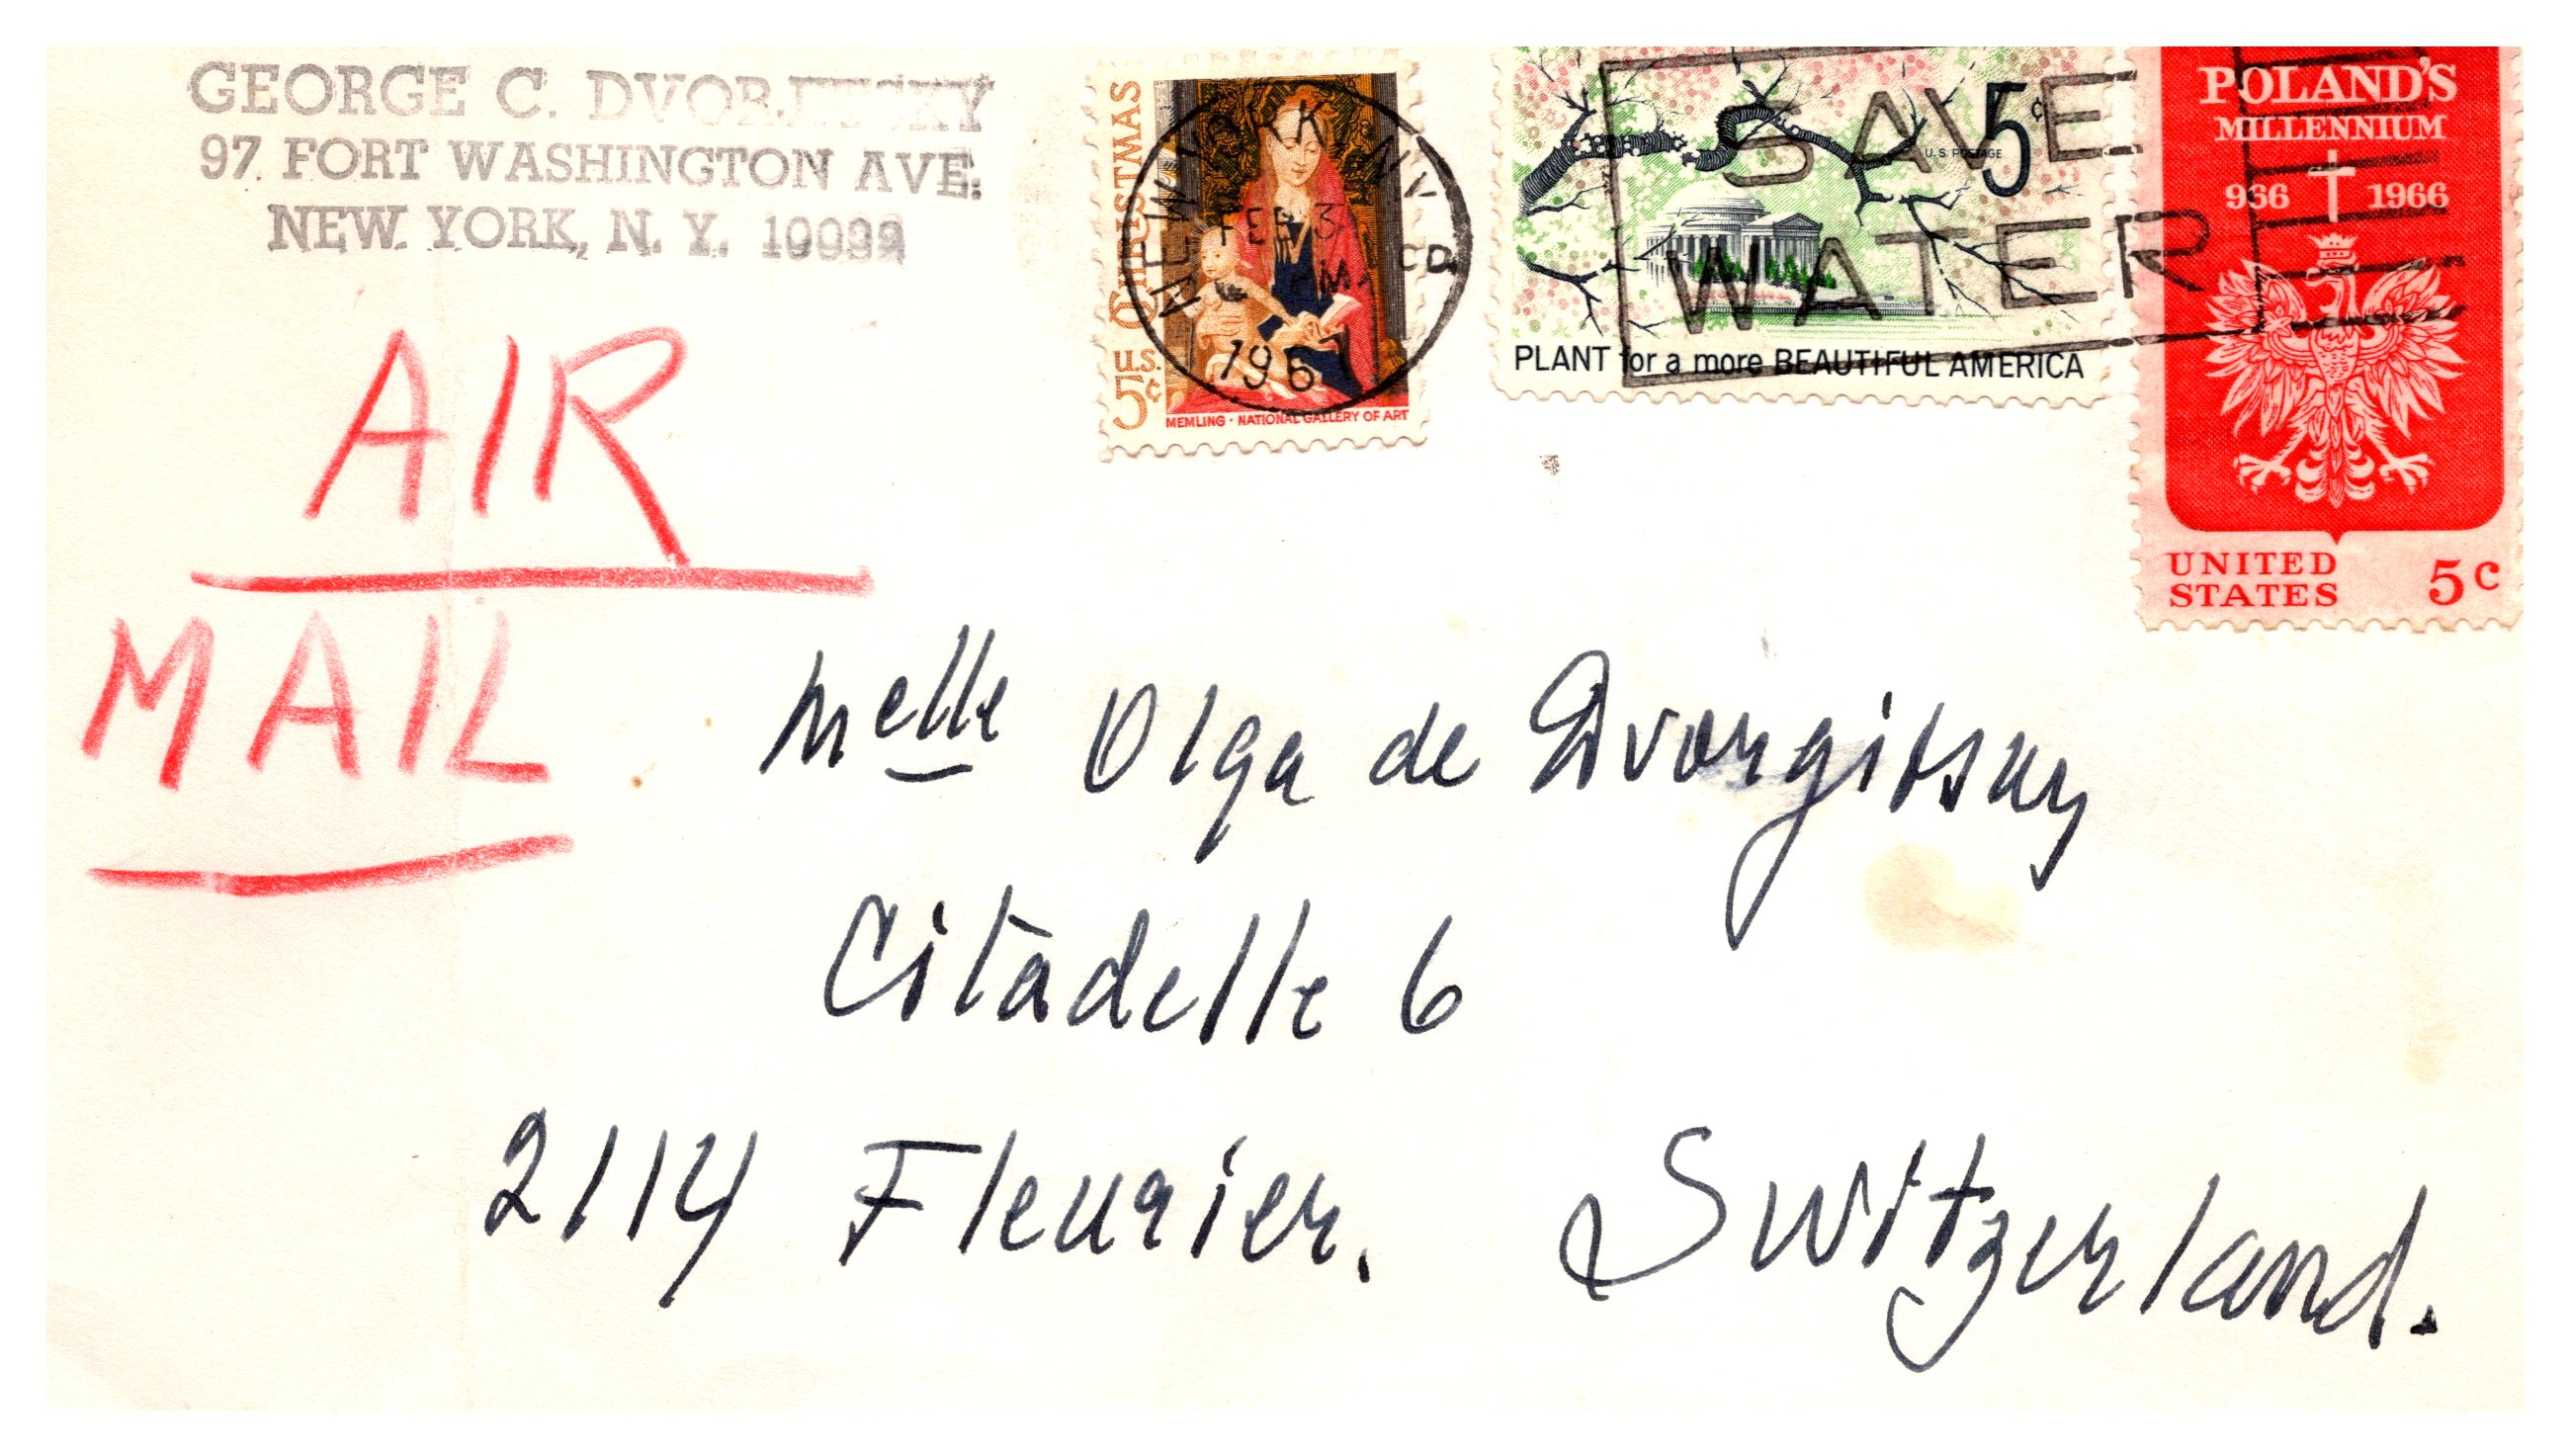 GEORGE C.
97 FORT WASHINGTON AVE.
NEW YORK, N. Y.
CHRISTMAS
U.S.
5c
MEMLING · NATIONAL GALLERY OF ART
NEW YORK, N.Y.
FEB 3
1967
5c
U.S. POSTAGE
PLANT for a more BEAUTIFUL AMERICA
SAVE
WATER
POLAND'S
MILLENNIUM
966 1966
UNITED
STATES 5c
AIR
MAIL
Melle Olga de
Citadelle 6
2114 Fleurier. Switzerland.